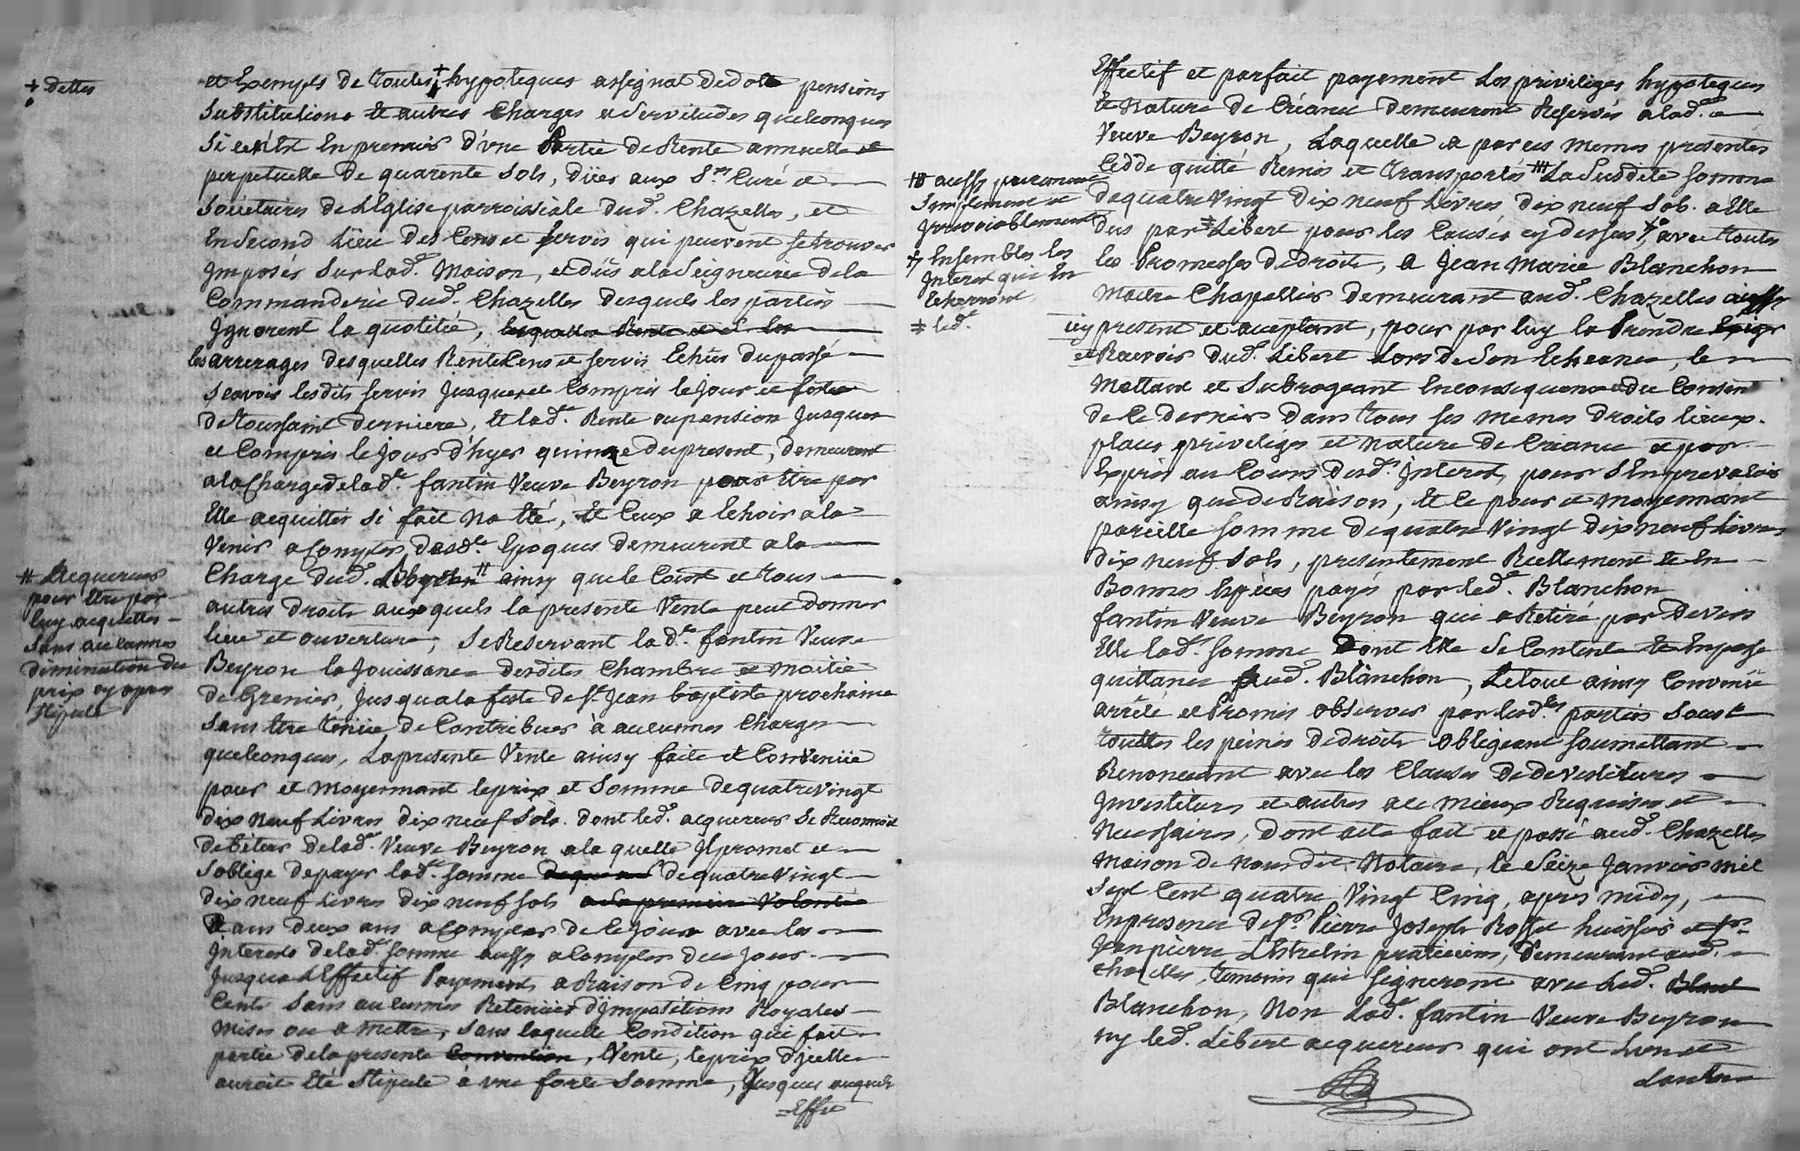 + dettes
et Exempts de toutes + hypoteques assignat de dot pensions
Substitutions et autres Charges et Servitudes quelconques
Si ce n'Est En premier d'une Partie de Rente annuelle et
perpetuelle de quarente Sols, dües aux S.rs Curé et
Sociétaires de L'Eglise parroissiale dud. Chazelles, et
En Second Lieu des Cens et Servis qui peuvent se trouver
Imposés Sur lad.e Maison, et dûs a la Seigneurie de la
Commanderie dud. Chazelles desquels les parties
Ignorent la quotitée,
les arrerages desquelles Rente Cens et servis Echüs du passé
Scavoir lesdits servis Jusques et Compris le jour et feste
de Toussaint derniere, Et lad.e Rente ou pension Jusques
et Compris le jour d'hyer quinze du present, demeurant
a la Charge de lad.e fantin Veuve Beyron pour être par
Elle acquittés Si fait Na Eté, Et Ceux a Echoir a la
Venir a Compter desd.es Epoques demeurent a la
Charge dud. # ainsy que le Coust et tous
autres droits auxquels la presente Vente peut donner
lieu et ouverture, Se Reservant lad.e fantin Veuve
Beyron la Jouissance desdites Chambre et Moitié
de Grenier, Jusqu a la feste de St Jean baptiste prochaine
Sans être tenüe de Contribuer à aucunes Charges
quelconques, La presente Vente ainsy faite et Convenüe
pour et Moyennant le prix et Somme de quatre vingt
dix neuf Livres dix neuf Sols dont led. acquereur Se Reconnoit
debiteur de lad. Veuve Beyron a la quelle Il promet et
S'oblige de payer lad.e Somme de quatre vingt
dix neuf Livres dix neuf sols a la premiere Volonté
dans deux ans a Compter de Ce Jour avec les
Interets de lad.e Somme aussy a Compter de ce Jour
Jusqu a L'Effectif Payement a Raison de Cinq pour
Cent Sans aucunes Retenües d'Impositions Royales
Mises ou a Mettre, Sans laquelle Condition qui fait
partie de la presente Convention, Vente, le prix d'icelle
auroit Eté Stipulé à une forte Somme, Jusques auquel
Effec
# acquereur
pour être par
luy acquittés
Sans aucunes
diminution du
prix cy apres
Stipulé
Effectif et parfait payement Les privileges hypoteques
et Nature de Créance demeurent Reservés a lad.e
Veuve Beyron, Laquelle a par ces memes presentes
Cedde quitte Remis et transportés # La Susdite Somme
de quatre Vingt dix neuf Livres dix neuf Sols a Elle
dus par ‡ Libert pour les Causes cy dessus, avec toutes
les Promesses de droits, a Jean Marie Blanchon
Maitre Chapellier demeurant aud. Chazelles aussy
icy present et acceptant, pour par luy la Prendre
et Recevoir dud. Libert Lors de Son Echeance, le
Mettant et Subrogeant En consequence du Consent
de Ce dernier dans tous Ses memes droits lieux
places privileges et Nature de Créance et par
Exprés au Cours desd.s Interets, pour S'En prevaloir
ainsy que de Raison, Et Ce pour et Moyennant
pareille Somme de quatre Vingt dix neuf Livres
dix neuf Sols, presentement Reellement et En
Bonnes Especes payés par led. Blanchon
fantin Veuve Beyron qui a Retiré par devers
Elle lad.e Somme Dont Elle Se Contente Et En passe
quittance aud. Blanchon, Le tout ainsy Convenü
arrêté et Promis observer par lesd.es parties Sous
toutes les peines de droits obligeant Soumettant
Renonceant avec les Clauses de devestitures
Investitures et autres a ce mieux Requises et
Necessaires, dont acte fait et passé aud. Chazelles
Maison de Nous dit Notaire, le Seize Janvier Mil
Sept Cent quatre Vingt Cinq, apres midy,
En presence de S.r Pierre Joseph Rosset huissier et S.r
Jean pierre praticiens, demeurant aud.
Chazelles, temoins qui Signeront avec led.
Blanchon, Non lad.e fantin Veuve Beyron
ny led. Libert acquereur qui ont
# aussy purement
Simplement et
Irrevocablement
Ensembles les
Interets qui En
Echerront
‡ led.